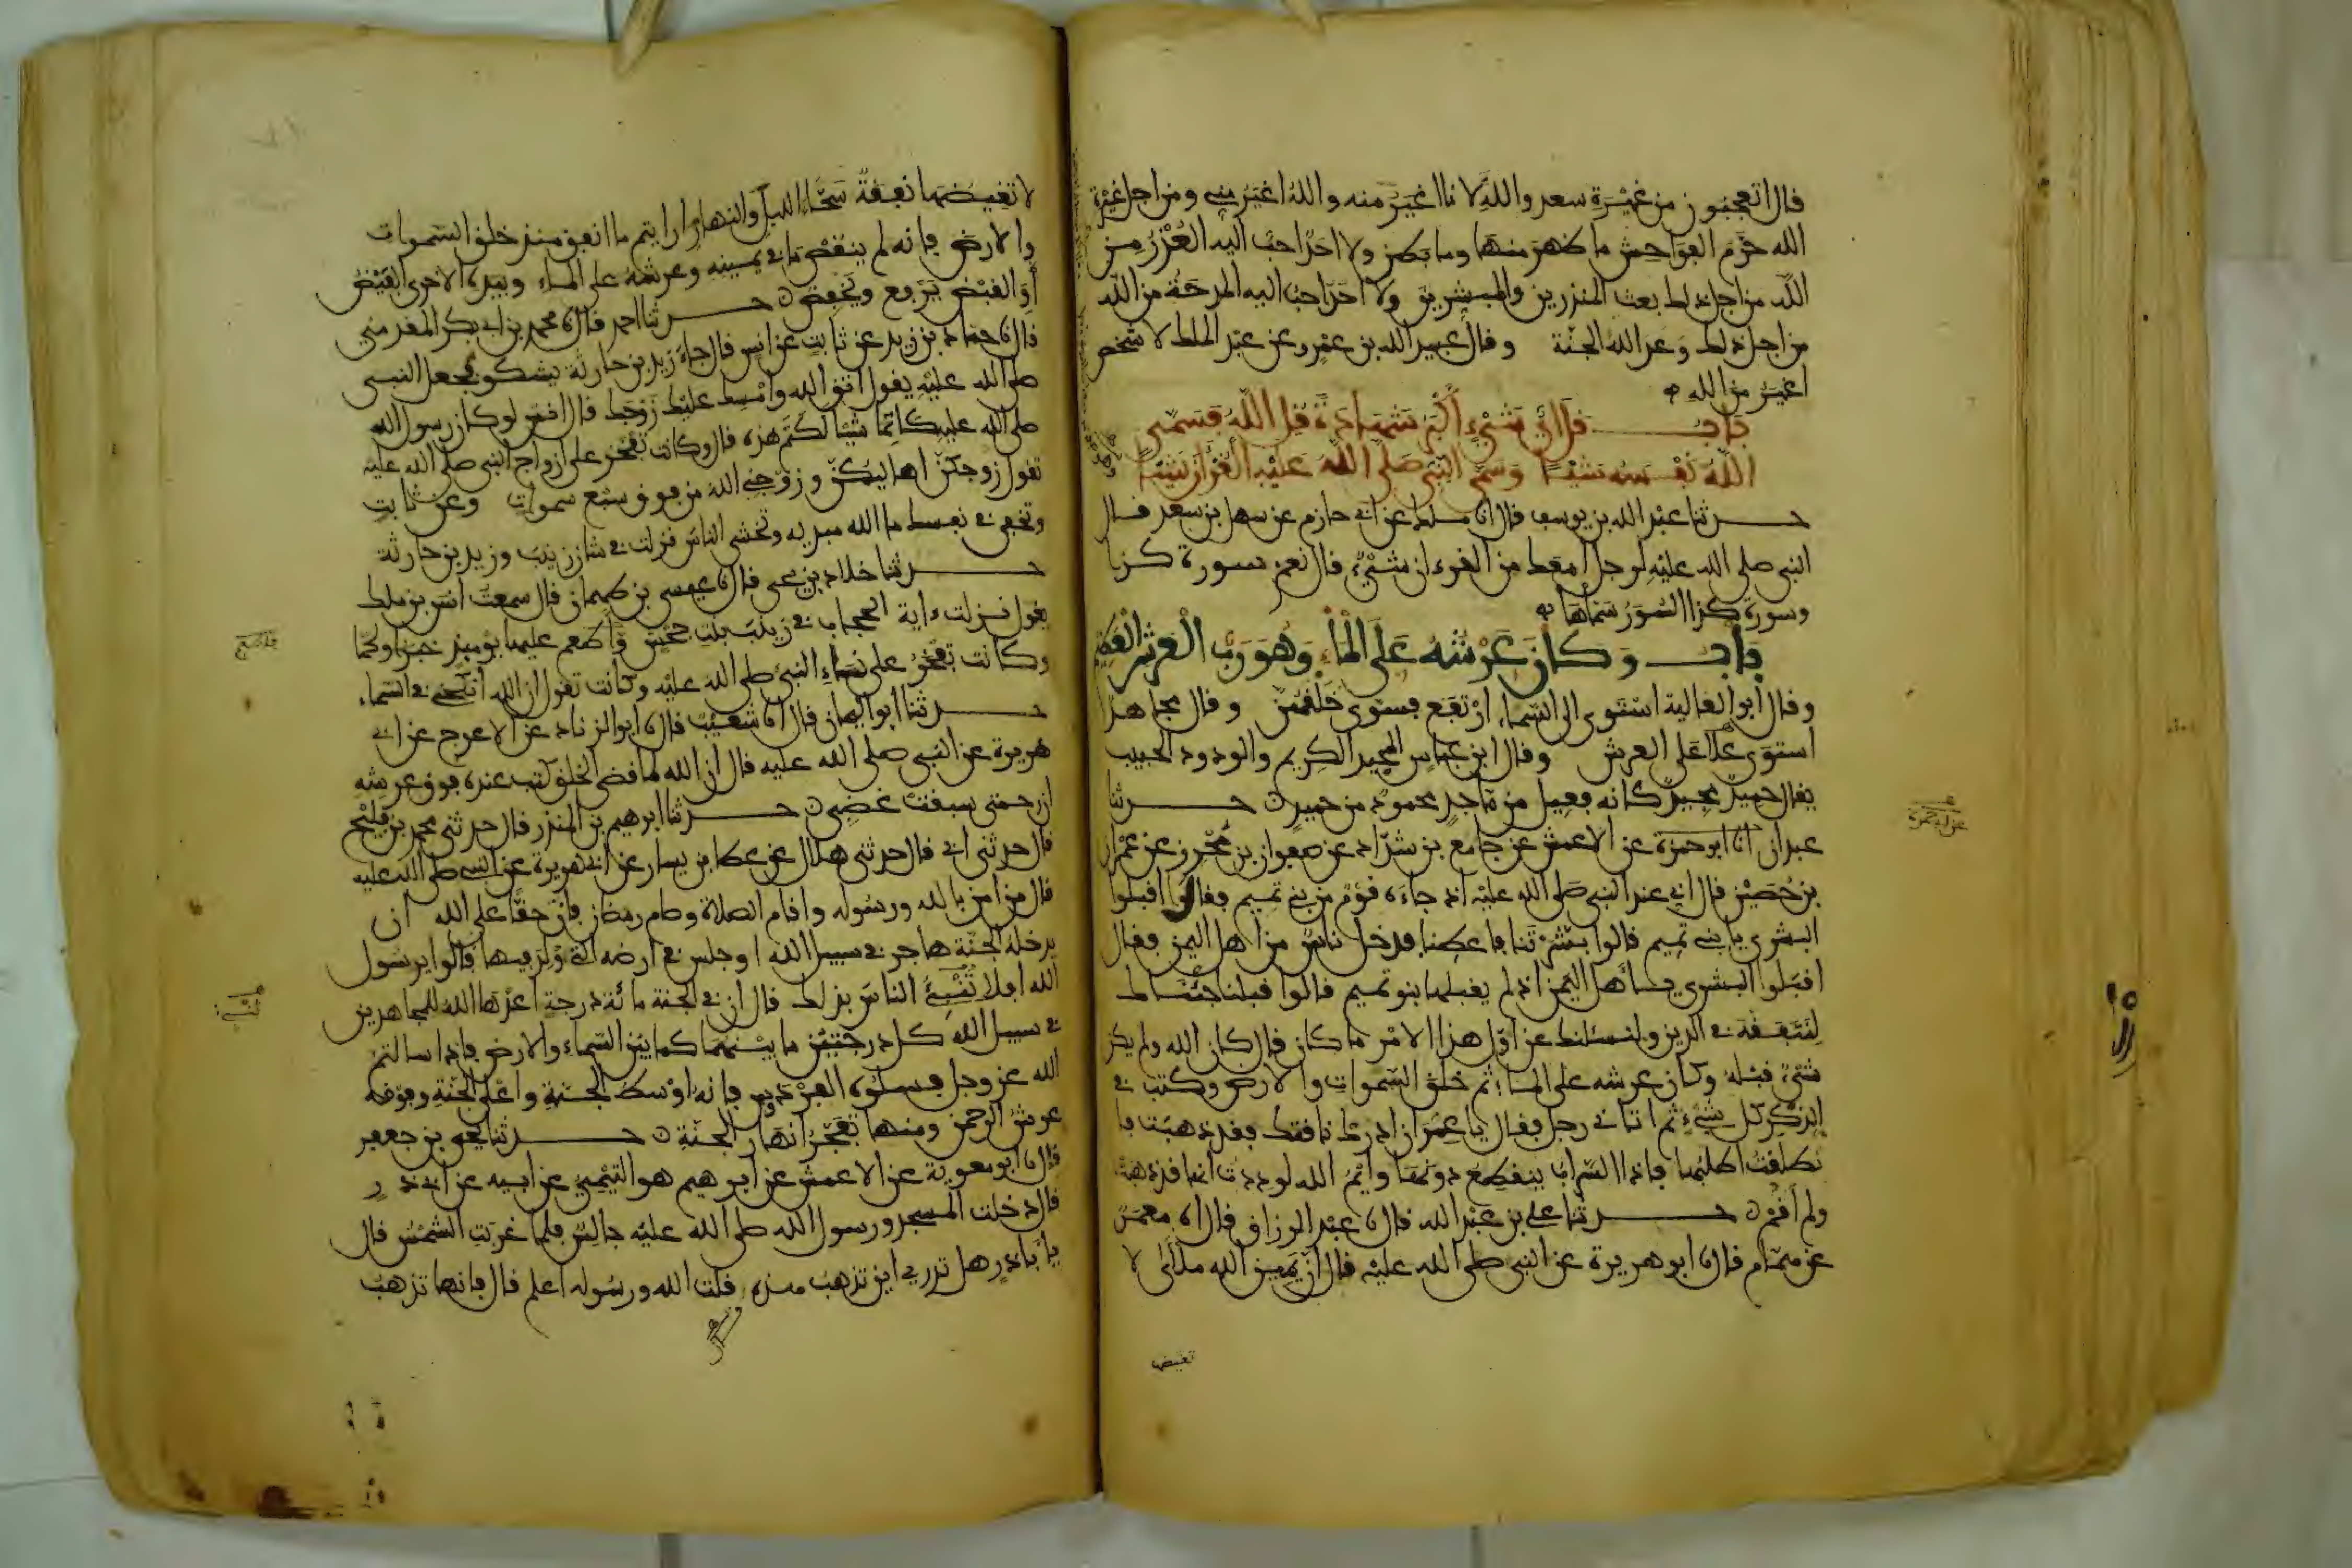 قال اتعجبون من غيرة سعد والله لانا اغير منه والله اغير مني ومن اجل غيرة
الله حرم الفواحش ما ظهر منها وما بطن ولا احد احب اليه العذر من
الله من اجل ذلك بعث المنذرين والمبشرين ولا احد احب اليه المدحة من الله
من اجل ذلك وعد الله الجنة وقال عبيد الله بن عمرو عن عبد الملك لا شخص
اغير من الله
باب قل اي شيء أكبر شهادة قل الله فسمى
الله نفسه شيئا وسمى النبي صلى الله عليه القرآن شيئا
حدثنا عبد الله بن يوسف قال انا ملك عن ابي حازم عن سهل بن سعد قال
النبي صلى الله عليه لرجل امعك من القرءان شيء قال نعم سورة كذا
وسورة كذا السور سماها
باب وكان عرشه على الماء وهو رب العرش العظيم
وقال ابو العالية استوى الى السماء ارتفع فسوى خلقهن وقال مجاهد
استوى علا على العرش وقال ابن عباس المجيد الكريم والودود الحبيب
يقال حميد مجيد كانه فعيل من ماجد محمود من حميد حدثنا
عبدان انا ابو حمزة عن الاعمش عن جامع بن شداد عن صفوان بن محرز عن عمران
بن حصين قال اني عند النبي صلى الله عليه اذ جاءه قوم من بني تميم فقال اقبلوا
البشرى يا بني تميم قالوا بشرتنا فاعطنا فدخل ناس من اهل اليمن فقال
اقبلوا البشرى يا أهل اليمن اذ لم يقبلها بنو تميم قالوا قبلنا جئناك
لنتفقه في الدين ولنسئلك عن اول هذا الامر ما كان قال كان الله ولم يكن
شيء قبله وكان عرشه على الماء ثم خلق السموات والارض وكتب في
الذكر كل شيء ثم اتاني رجل فقال يا عمران ادرك ناقتك فقد ذهبت فا
نطلقت اطلبها فاذا السراب ينقطع دونها وايم الله لوددت انها قد ذهبت
ولم أقم حدثنا علي بن عبد الله قال نا عبد الرزاق قال انا معمر
عن همام قال نا ابو هريرة عن النبي صلى الله عليه قال ان يمين الله ملأى لا
تغيض
لا تغيضها نفقة سحاء الليل والنهار ارايتم ما انفق منذ خلق السموات
والارض فانه لم ينقص ما في يمينه وعرشه على الماء وبيده الاخرى الفيض
أو القبض يرفع ويخفض حدثنا احمد قال نا محمد بن ابي بكر المقدمي
قال نا حماد بن زيد عن ثابت عن انس قال جاء زيد بن حارثة يشكو فجعل النبي
صلى الله عليه يقول اتق الله وامسك عليك زوجك قال انس لو كان رسول الله
صلى الله عليه كاتما شيئا لكتم هذه قال وكانت تفخر على ازواج النبي صلى الله عليه
تقول زوجكن اهاليكن وزوجني الله من فوق سبع سموات وعن ثابت
وتخفي في نفسك ما الله مبديه وتخشى الناس نزلت في شان زينب وزيد بن حارثة
حدثنا خلاد بن يحيى قال نا عيسى بن طهمان قال سمعت انس بن ملك
يقول نزلت ءاية الحجاب في زينب بنت جحش واطعم عليها يومئذ خبزا ولحما
وكانت تفخر على نساء النبي صلى الله عليه وكانت تقول ان الله أنكحني في السماء
حدثنا ابو اليمان قال انا شعيب قال نا ابو الزناد عن الاعرج عن ابي
هريرة عن النبي صلى الله عليه قال ان الله لما قضى الخلق كتب عنده فوق عرشه
ان رحمتي سبقت غضبي حدثنا ابرهيم بن المنذر قال حدثني محمد بن فليح
قال حدثني ابي قال حدثني هلال عن عطا بن يسار عن ابي هريرة عن النبي صلى الله عليه
قال من امن بالله ورسوله واقام الصلاة وصام رمضان فان حقا على الله ان
يدخله الجنة هاجر في سبيل الله او جلس في ارضه التي ولد فيها قالوا يرسول
الله افلا ننبئ الناس بذلك قال ان في الجنة مائة درجة اعدها الله للمجاهدين
في سبيل الله كل درجتين ما بينهما كما بين السماء والارض فاذا سالتم
الله عز وجل فسلوه الفردوس فانه اوسط الجنة واعلى الجنة وفوقه
عرش الرحمن ومنها تفجر انهار الجنة حدثنا يحيى بن جعفر
قال نا ابو معوية عن الاعمش عن ابرهيم هو التيمي عن ابيه عن ابي ذر
قال دخلت المسجد ورسول الله صلى الله عليه جالس فلما غربت الشمس قال
يا أبا ذر هل تدري اين تذهب هذه قلت الله ورسوله اعلم قال فانها تذهب